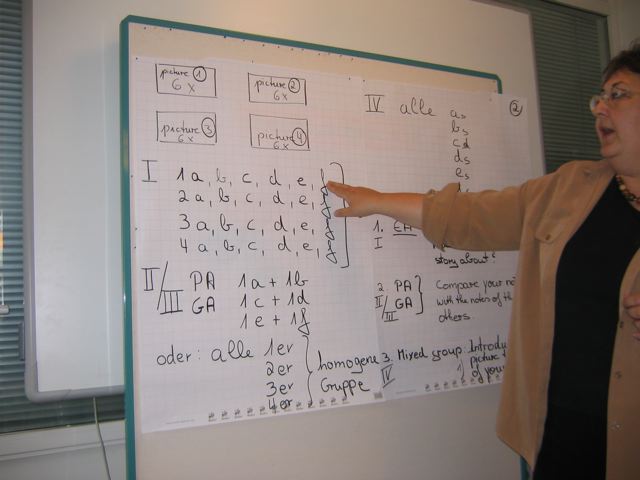 picture 1
6x
picture 2
6x
picture 3
6x
picture 4
6x
I 1a, b, c, d, e, f
2a, b, c, d, e, f
3a, b, c, d, e, f
4a, b, c, d, e, f
II/III PA 1a + 1b
GA 1c + 1d
1e + 1f
oder: alle 1er
2er
3er
4er
homogene
Gruppe
2
IV alle as
bs
cs
ds
es
1. EA
I
story about
2 PA
II/III GA
Compare your
with the notes of the
others.
3. Mixed group: Introdu
IV 1) picture
of your